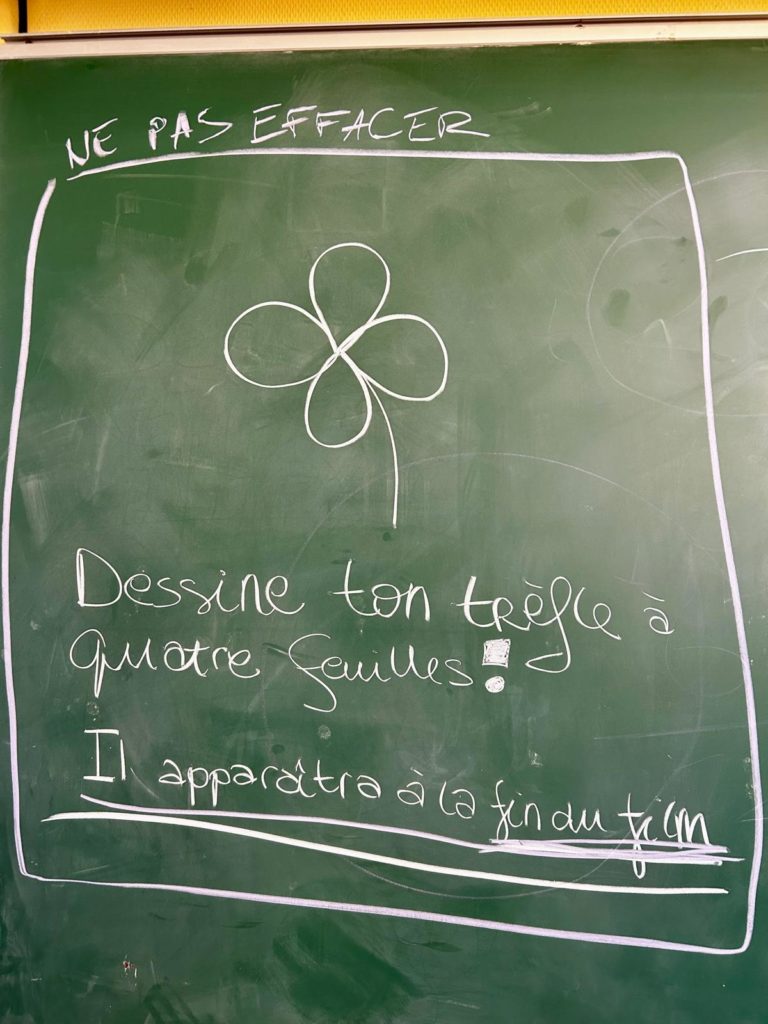 NE PAS EFFACER
Dessine ton trèfle à
quatre feuilles!
Il apparaîtra à la fin du film